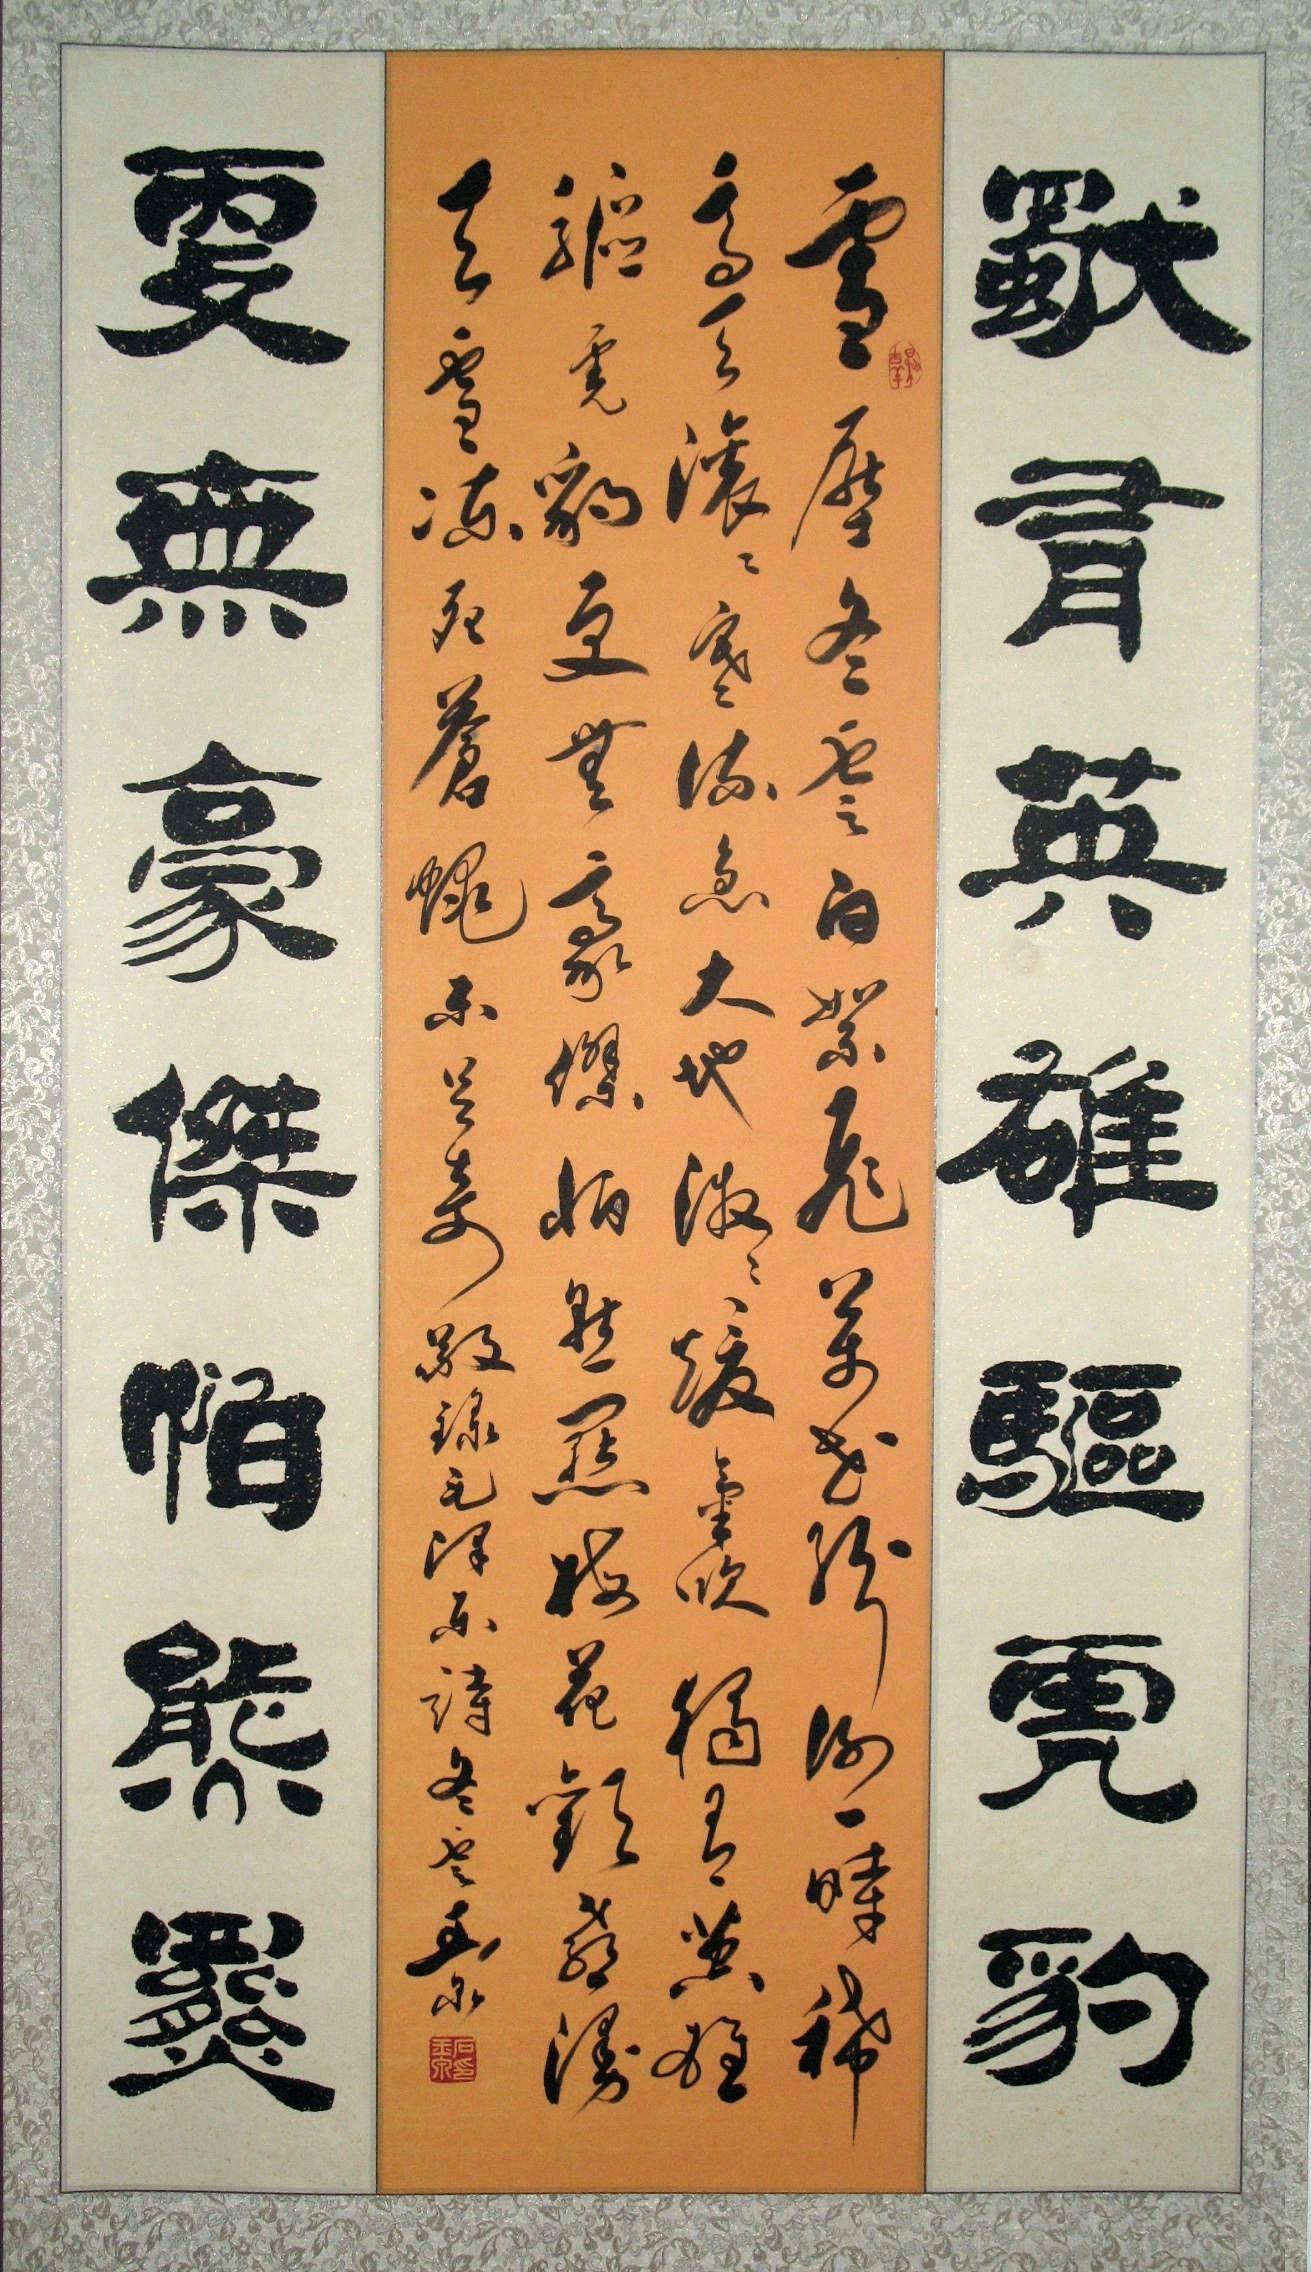 獨有英雄驅虎豹
雪壓冬雲白絮飛萬花紛謝一時稀
高天滾〻寒流急大地微〻暖氣吹獨有英雄
驅虎豹更無豪傑怕熊羆梅花歡喜漫
天雪凍死蒼蠅未足奇敬錄毛澤東詩冬雲玉泉
石玉泉印
更無豪傑怕熊羆